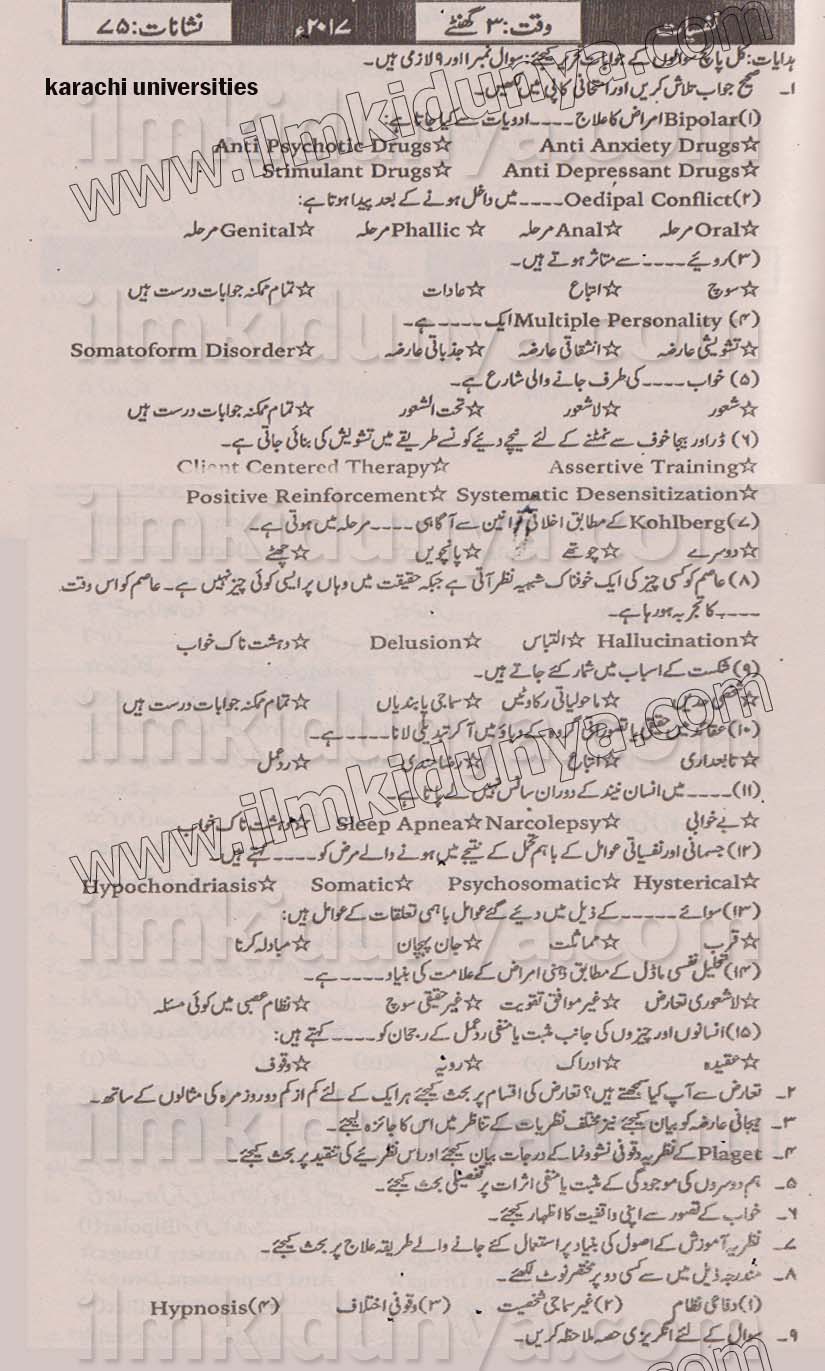 نفسیات وقت: ۳ گھنٹے ۲۰۱۷ء نشانات: ۷۵
ہدایات: کل پانچ سوالوں کے جوابات تحریر کیجئے: سوال نمبر ۱ اور ۹ لازمی ہیں۔
karachi universities
۱۔ صحیح جواب تلاش کریں اور امتحانی کاپی میں لکھیں۔
(۱) Bipolar امراض کا علاج ۔۔۔۔ ادویات سے کیا جاتا ہے:
☆Anti Anxiety Drugs ☆Anti Psychotic Drugs
☆Anti Depressant Drugs ☆Stimulant Drugs
(۲) Oedipal Conflict ۔۔۔۔ میں داخل ہونے کے بعد پیدا ہوتا ہے:
☆Oral مرحلہ ☆Anal مرحلہ ☆Phallic مرحلہ ☆Genital مرحلہ
(۳) رویئے ۔۔۔۔ سے متاثر ہوتے ہیں۔
☆سوچ ☆اتباع ☆عادات ☆تمام ممکنہ جوابات درست ہیں
(۴) Multiple Personality ایک ۔۔۔۔ ہے۔
☆تشویشی عارضہ ☆انشقاقی عارضہ ☆جذباتی عارضہ ☆Somatoform Disorder
(۵) خواب ۔۔۔۔ کی طرف جانے والی شارع ہے۔
☆شعور ☆لاشعور ☆تحت الشعور ☆تمام ممکنہ جوابات درست ہیں
(۶) ڈر اور بیجا خوف سے نمٹنے کے لئے نیچے دیئے کونسے طریقے میں تشویش کی بنائی جاتی ہے۔
☆Assertive Training ☆Client Centered Therapy
☆Systematic Desensitization ☆Positive Reinforcement
(۷) Kohlberg کے مطابق اخلاقی قوانین سے آگاہی ۔۔۔۔ مرحلہ میں ہوتی ہے۔
☆دوسرے ☆چوتھے ☆پانچویں ☆چھٹے
(۸) عاصم کو کسی چیز کی ایک خوفناک شبیہ نظر آتی ہے جبکہ حقیقت میں وہاں پر ایسی کوئی چیز نہیں ہے۔ عاصم کو اس وقت
۔۔۔۔ کا تجربہ ہو رہا ہے۔
☆Hallucination ☆التباس ☆Delusion ☆دہشت ناک خواب
(۹) شکست کے اسباب میں شمار کئے جاتے ہیں۔
☆شخصی ☆ماحولیاتی رکاوٹیں ☆سماجی پابندیاں ☆تمام ممکنہ جوابات درست ہیں
(۱۰) عقائد میں حقیقی یا تصوراتی گروہ کے دباؤ میں آ کر تبدیلی لانا ۔۔۔۔ ہے۔
☆تابعداری ☆اتباع ☆رضامندی ☆ردعمل
(۱۱) ۔۔۔۔ میں انسان نیند کے دوران سانس نہیں لے پاتا ہے۔
☆بے خوابی ☆Narcolepsy ☆Sleep Apnea ☆دہشت ناک خواب
(۱۲) جسمانی اور نفسیاتی عوامل کے باہم تخل کے نتیجے میں ہونے والے مرض کو ۔۔۔۔ کہتے ہیں۔
☆Hysterical ☆Psychosomatic ☆Somatic ☆Hypochondriasis
(۱۳) سوائے ۔۔۔۔۔ کے ذیل میں دیئے گئے عوامل باہمی تعلقات کے عوامل ہیں:
☆قرب ☆مماثلت ☆جان پہچان ☆مبادلہ کرنا
(۱۴) تحلیل نفسی ماڈل کے مطابق ذہنی امراض کے علامت کی بنیاد ۔۔۔۔ ہے۔
☆لاشعوری تعارض ☆غیر موافق تقویت ☆غیر حقیقی سوچ ☆نظام عصبی میں کوئی مسئلہ
(۱۵) انسانوں اور چیزوں کی جانب مثبت یا منفی ردعمل کے رجحان کو ۔۔۔۔ کہتے ہیں:
☆عقیدہ ☆ادراک ☆رویہ ☆وقوف
۲۔ تعارض سے آپ کیا سمجھتے ہیں؟ تعارض کی اقسام پر بحث کیجئے ہر ایک کے لئے کم از کم دو روزمرہ کی مثالوں کے ساتھ۔
۳۔ ہیجانی عارضہ کو بیان کیجئے نیز مختلف نظریات کے تناظر میں اس کا جائزہ لیجئے۔
۴۔ Plaget کے نظریہ وقوفی نشوونما کے درجات بیان کیجئے اور اس نظریئے کی تنقید پر بحث کیجئے۔
۵۔ ہم دوسروں کی موجودگی کے مثبت یا منفی اثرات پر تفصیلی بحث کیجئے۔
۶۔ خواب کے تصور سے اپنی واقفیت کا اظہار کیجئے۔
۷۔ نظریہ آموزش کے اصول کی بنیاد پر استعمال کئے جانے والے طریقہ علاج پر بحث کیجئے۔
۸۔ مندرجہ ذیل میں سے کسی دو پر مختصر نوٹ لکھئے۔
(۱) دفاعی نظام (۲) غیر سماجی شخصیت (۳) وقوفی اختلاف (۴) Hypnosis
۹۔ سوال کے لئے انگریزی حصہ ملاحظہ کریں۔
www.ilmkidunya.com
www.ilmkidunya.com
ilmkidunya.com